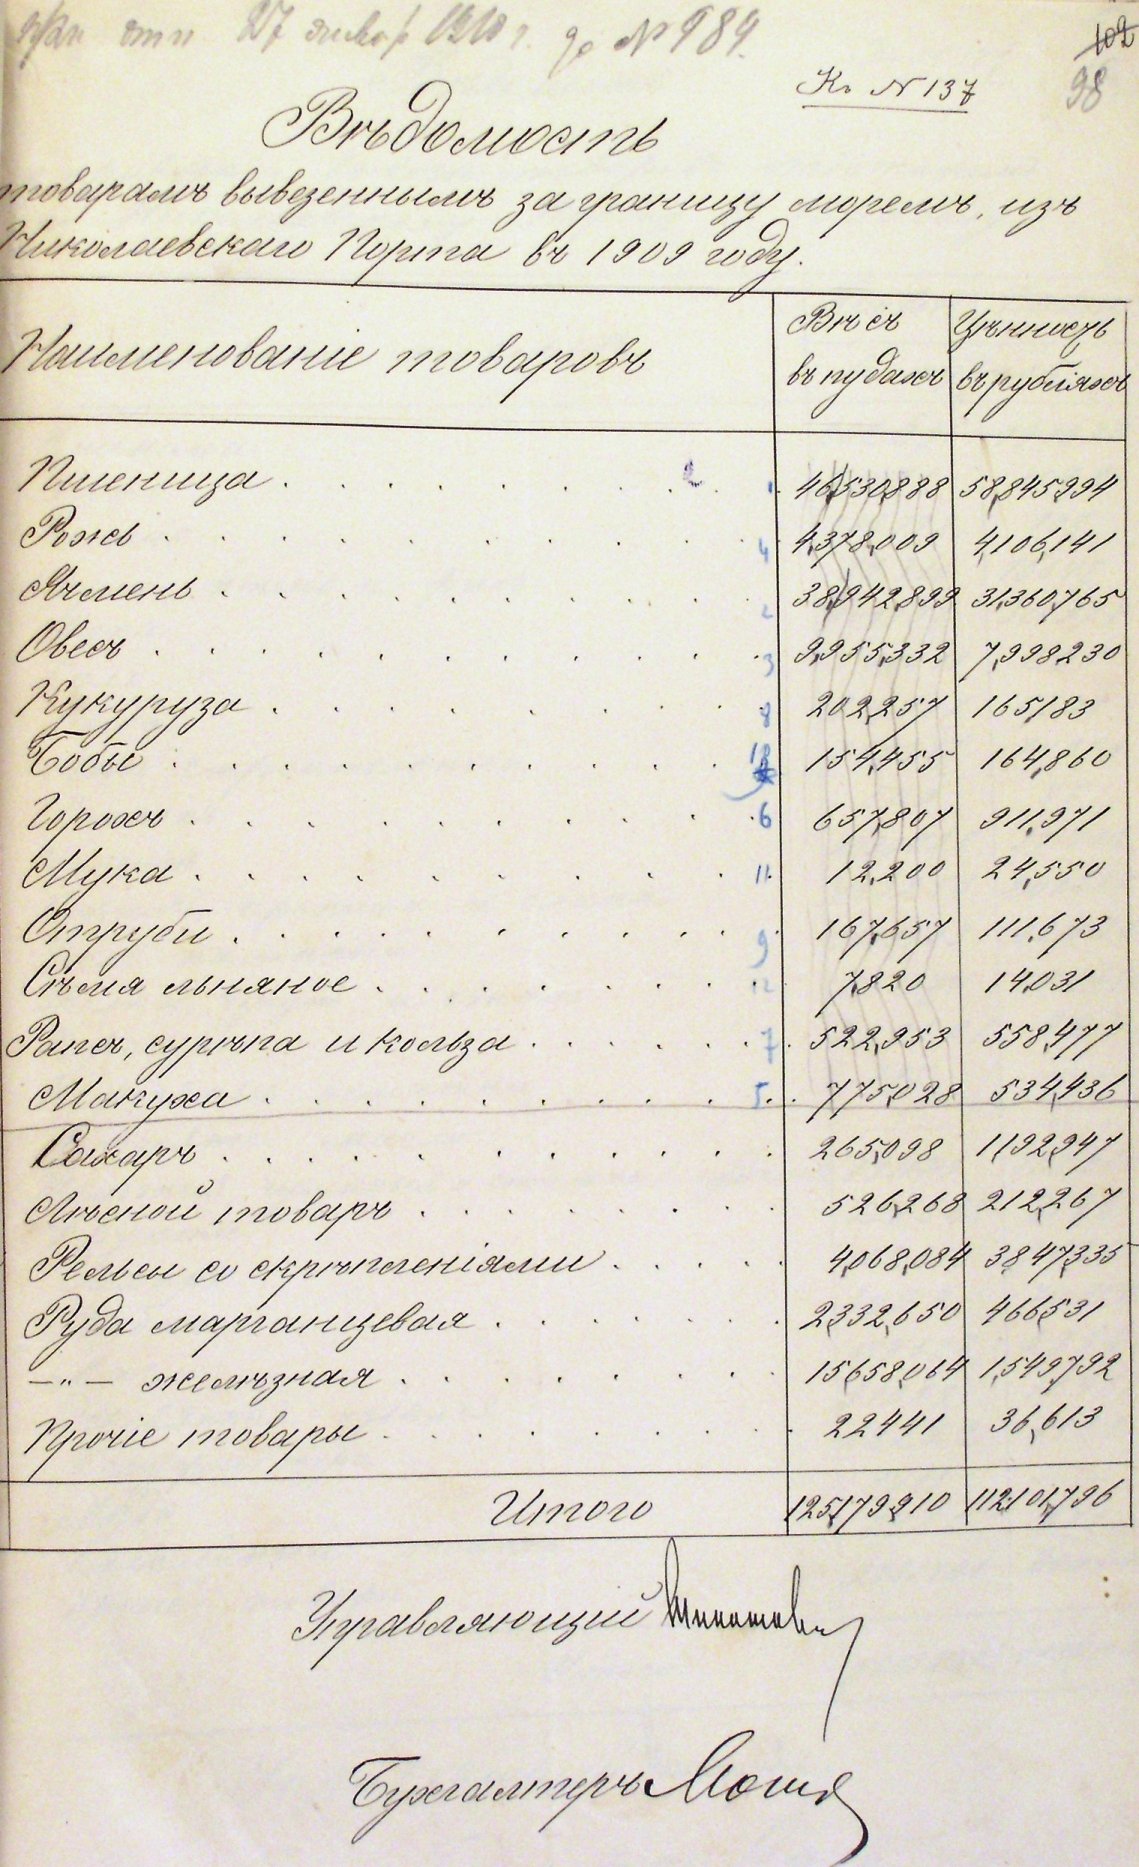 27 января 1910 г. за № 984.
102
98
Къ № 137
Вѣдомость
товарамъ вывезеннымъ за границу моремъ, изъ
Николаевскаго Порта въ 1909 году.
Наименованіе товаровъ Вѣсъ въ пудахъ Цѣнность въ рубляхъ
Пшеница . . . . . . . . 2 . 1 46,530,888 58,845,994
Рожь . . . . . . . . . . 4 4,378,009 4,106,141
Ячмень . . . . . . . . . 2 38,942,899 31,360,765
Овесъ . . . . . . . . . . 3 9,955,332 7,998,230
Кукуруза . . . . . . . . 8 202,257 165,183
Бобы . . . . . . . . . . 10 154,455 164,860
Горохъ . . . . . . . . . 6 657,807 911,971
Мука . . . . . . . . . . 11 12,200 24,550
Отруби . . . . . . . . . 9 167,657 111,673
Сѣмя льняное . . . . . . . 12 7,820 14,031
Рапсъ, сурѣпа и кольза . . . . . 7 522,953 558,477
Макуха . . . . . . . . . 5 775,028 534,436
Сахаръ . . . . . . . . . . 265,098 1,192,947
Лѣсной товаръ . . . . . . . 526,268 212,267
Рельсы со скрѣпленіями . . . . 4,068,084 3,847,335
Руда марганцевая . . . . . . 2,332,650 466,531
—"— желѣзная . . . . . . . 15,658,064 1,549,792
Прочіе товары . . . . . . . 22441 36,613
Итого 125,179,910 112,101,796
Управляющій
Бухгалтеръ